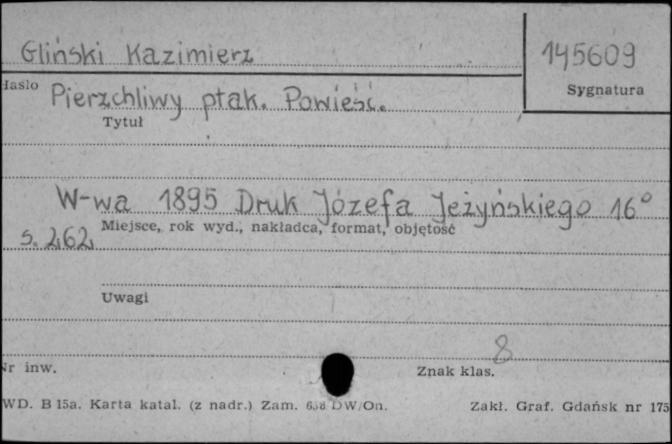 Gliński Kazimierz
145609
Hasło
Sygnatura
Pierzchliwy ptak. Powieść.
Tytuł
W-wa 1895 Druk Józefa Jeżyńskiego 16°
Miejsce, rok wyd., nakładca, format, objętość
s. 262
Uwagi
8
Nr inw.
Znak klas.
WD. B 15a. Karta katal. (z nadr.) Zam. DW/On.
Zakł. Graf. Gdańsk nr 175